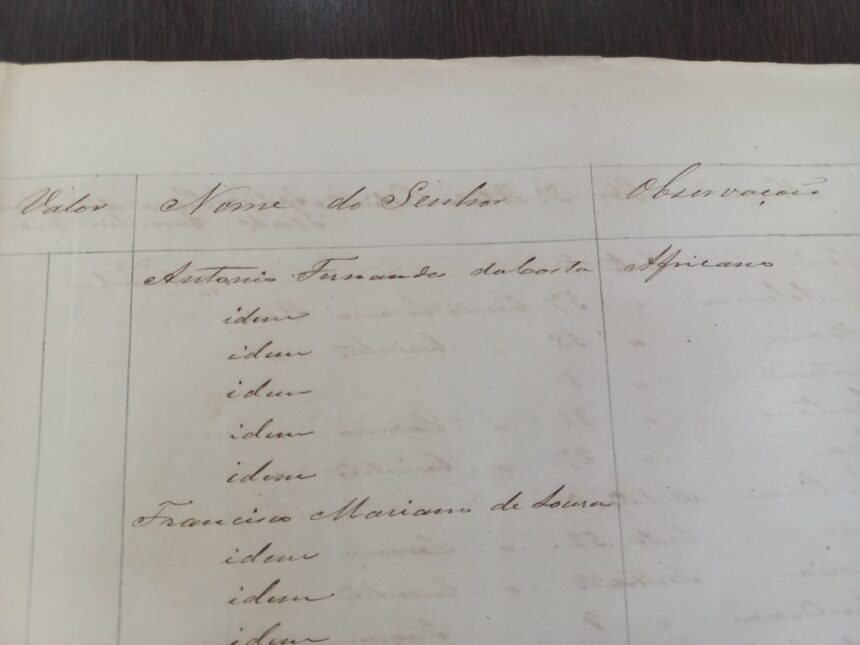 Valor Nome do Senhor Observação
Antonio Fernandes da Costa Africano
idem
idem
idem
idem
idem
Francisco Mariano de Souza
idem
idem
idem